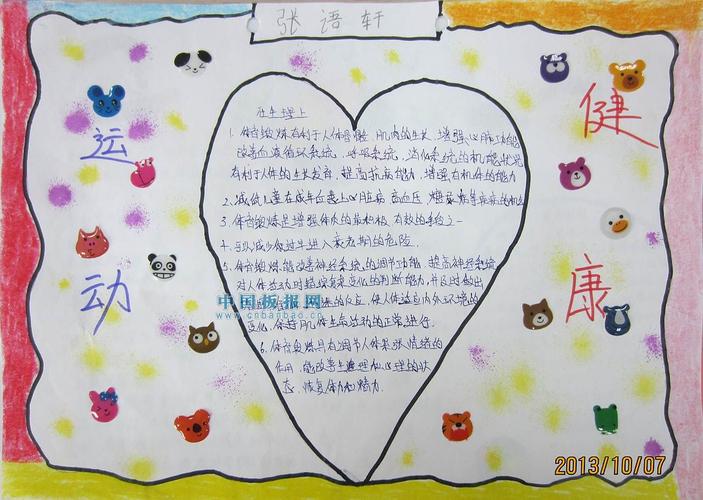 张语轩
运动
健康
在生理上
1. 体育锻炼有利于人体骨骼、肌肉的生长,增强心肺功能
改善血液循环系统,呼吸系统,消化系统的机能状况
有利于人体的生长发育,提高抗病能力,增强有机体的能力
2. 减低儿童在成年后患上心脏病,高血压,糖尿病等疾病的机会
3. 体育锻炼是增强体质的最积极,有效的手段之一
4. 可以减少你过早进入衰老期的危险.
5. 体育锻炼能改善神经系统的调节功能,提高神经系统
对人体活动时错综复杂变化的判断能力,并及时做出
的反应,使人体适应内外环境的
变化,保持肌体生命活动的正常进行.
6. 体育锻炼具有调节人体紧张情绪的
作用,能改善生理和心理的状
态,恢复体力和精力.
中国板报网
www.cnbanbao.cn
2013/10/07